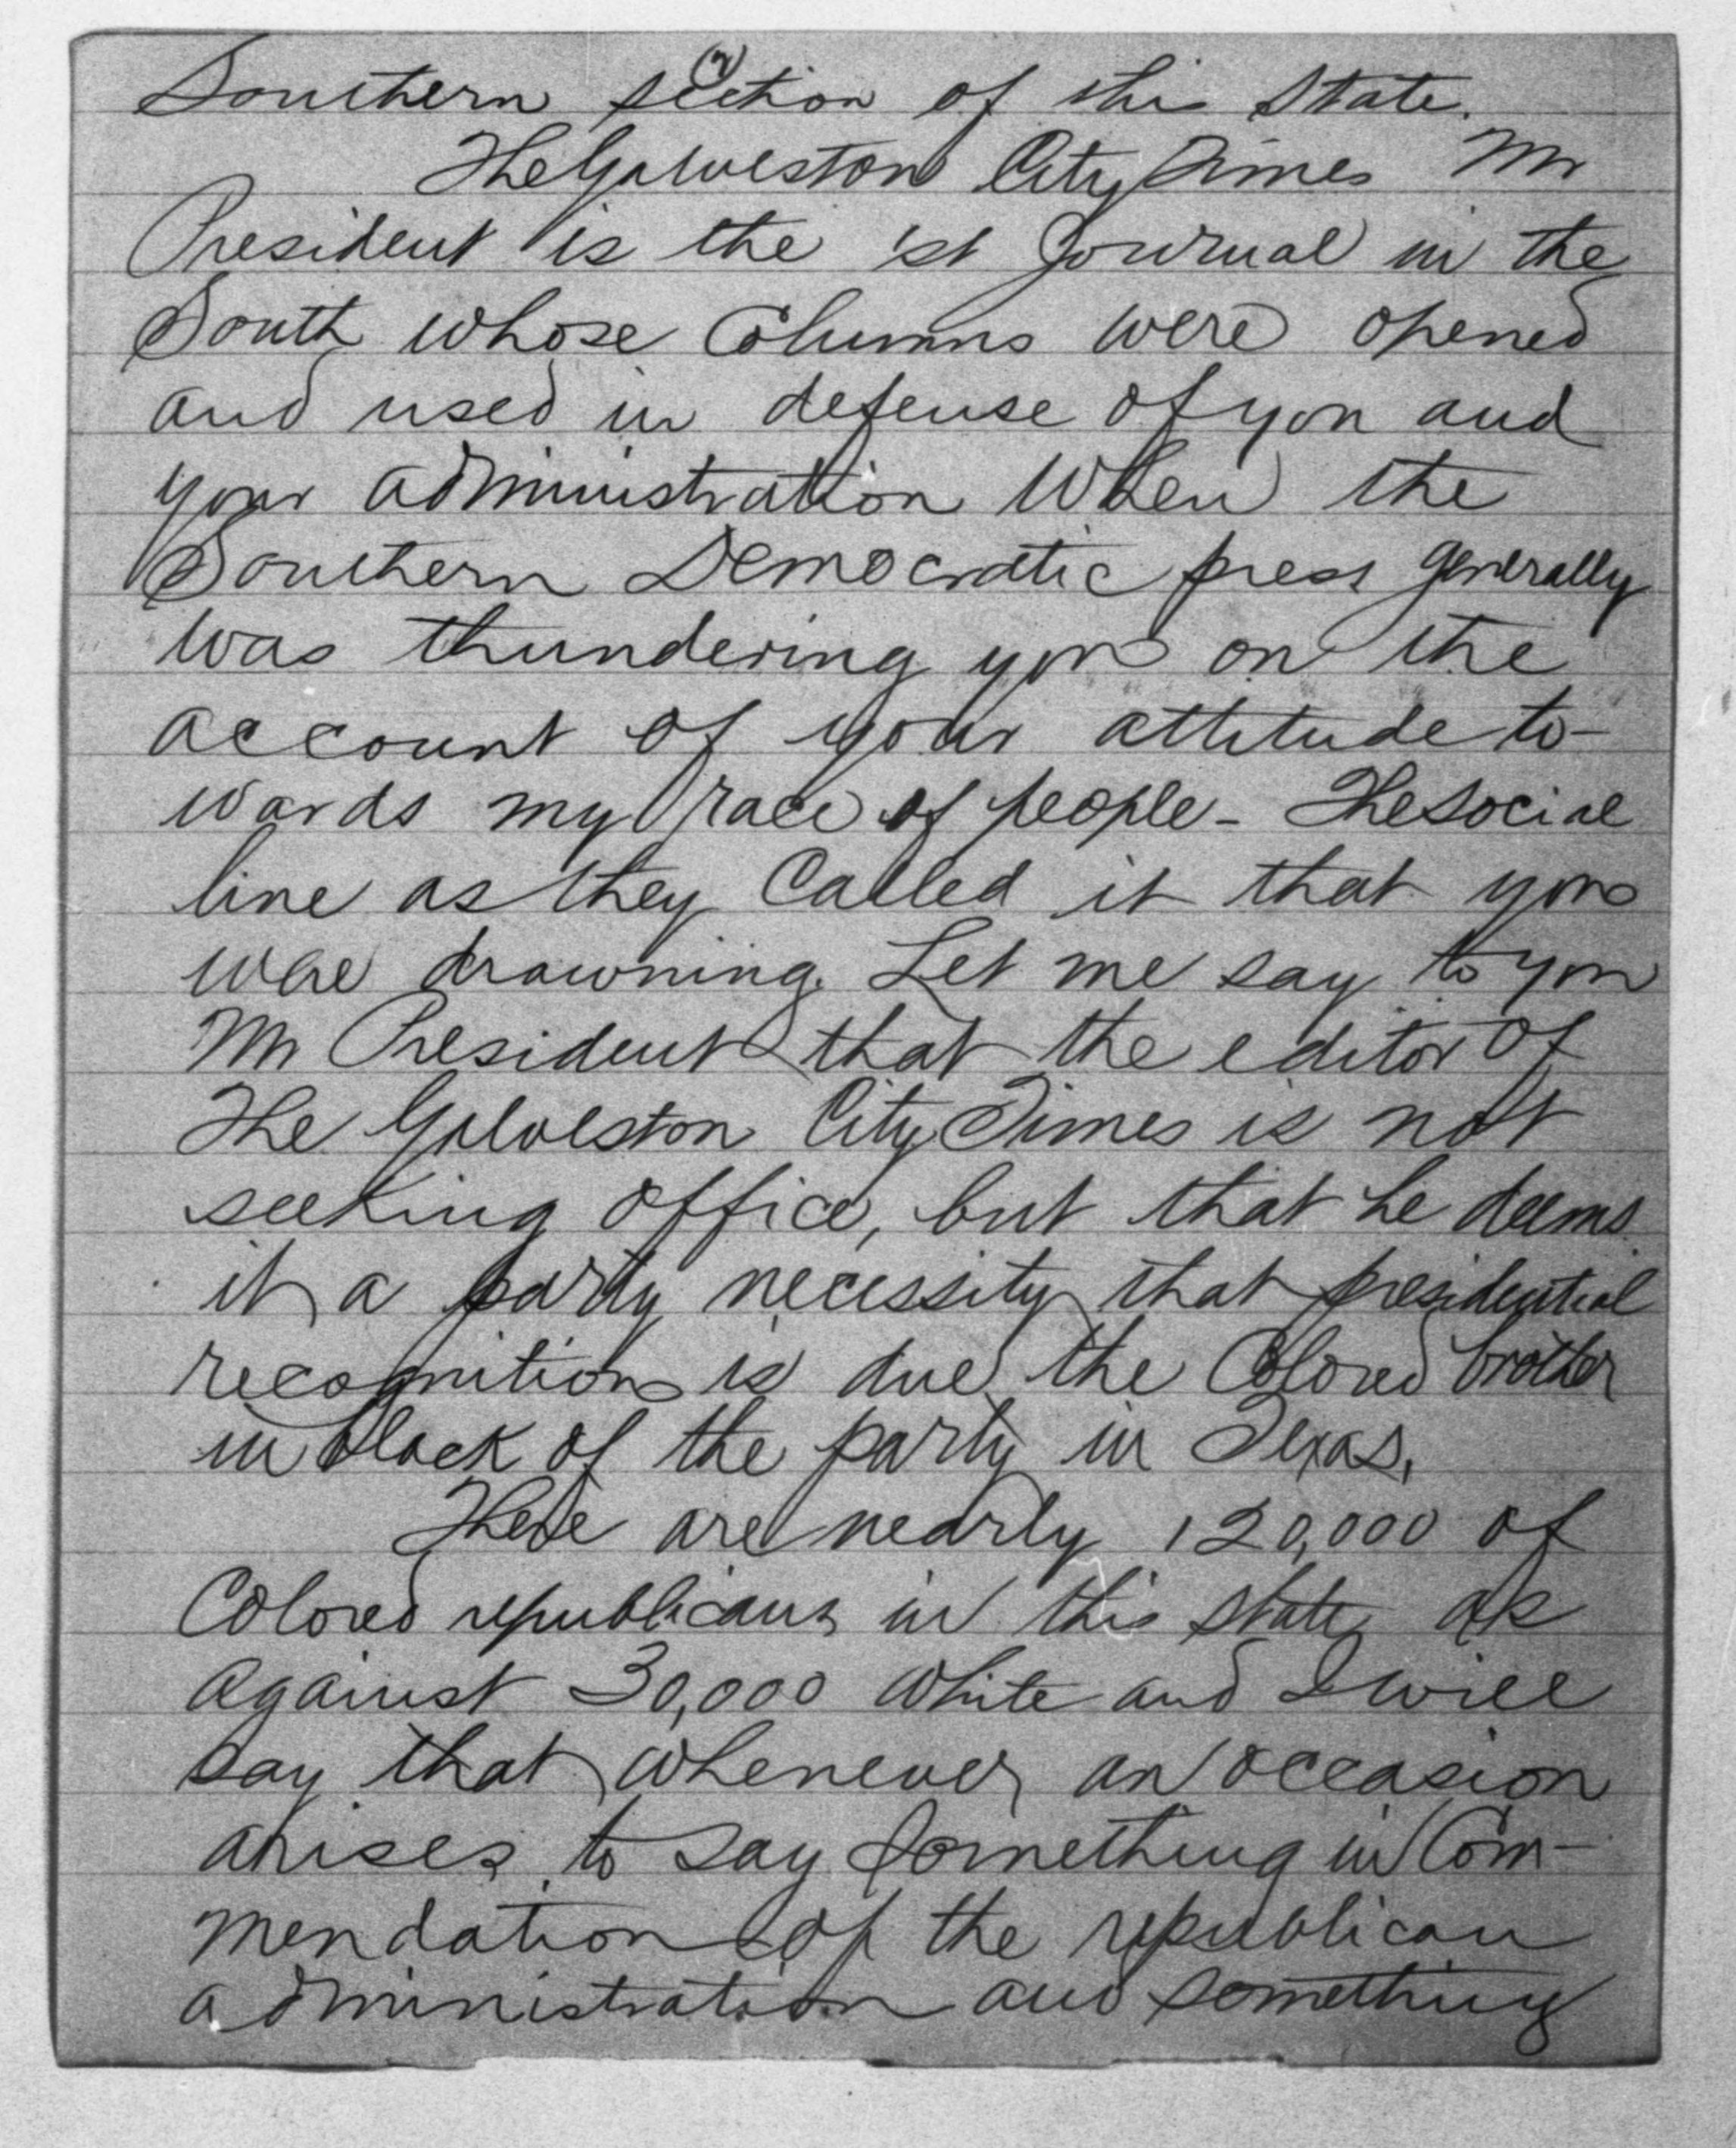 (2)
Southern section of this State.
The Galveston City Times Mr
President is the 1st Journal in the
South whose Columns were opened
and used in defense of you and
your administration when the
Southern Democratic press generally
was thundering you on the
account of your attitude to-
wards my race of people - The social
line as they Called it that you
were drawning. Let me say to you
Mr President that the editor of
The Galveston City Times is not
seeking office, but that he deems
it a party necessity that presidential
recognition is due the Colored brother
in black of the party in Texas.
There are nearly 120,000 of
Colored republicans in this state as
against 30,000 white and I will
say that whenever an occasion
arises to say something in Com-
mendation of the republican
administration and something